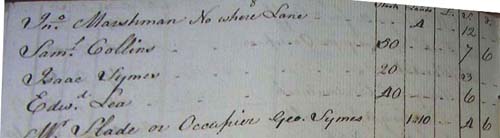 Jno. Marshman No where Lane 4 12
Saml. Collins 50 7 6
Isaac Symes 20 3
Edwd. Lea 40 6
Mr. Slade or Occupier Geo. Symes 1210 4 6